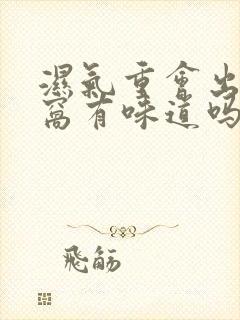 濕氣重會出
窩有味道嗎
飛觞